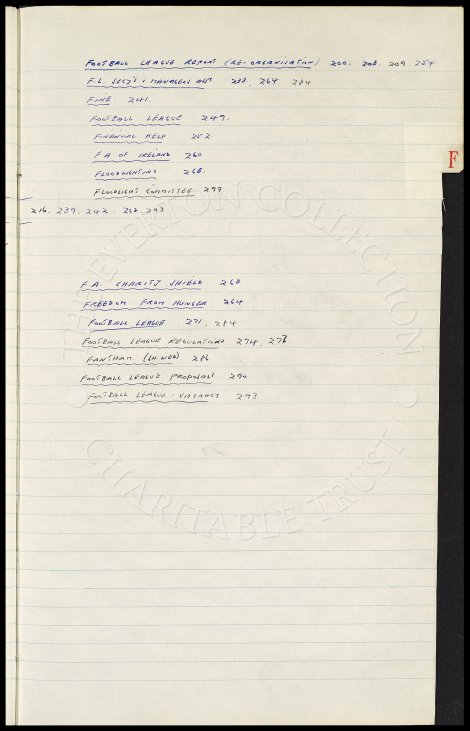 FOOTBALL LEAGUE REPORT (RE-ORGANISATION) 200. 208. 209 254
F.L. SECY'S & MANAGERS ASS 238. 264 284
FINE 241.
FOOTBALL LEAGUE 249.
FINANCIAL HELP 252
F.A OF IRELAND 260
FLOODLIGHTING 268.
FLOODLIGHT COMMITTEE 299
216. 239. 242. 293
F
F.A. CHARITY SHIELD 260
FREEDOM FROM HUNGER 264
FOOTBALL LEAGUE 271. 284
FOOTBALL LEAGUE REGULATIONS 274. 278.
FANTHAM 286
FOOTBALL LEAGUE PROPOSALS 290
FOOTBALL LEAGUE - VACANCY 293
THE EVERTON COLLECTION
CHARITABLE TRUST